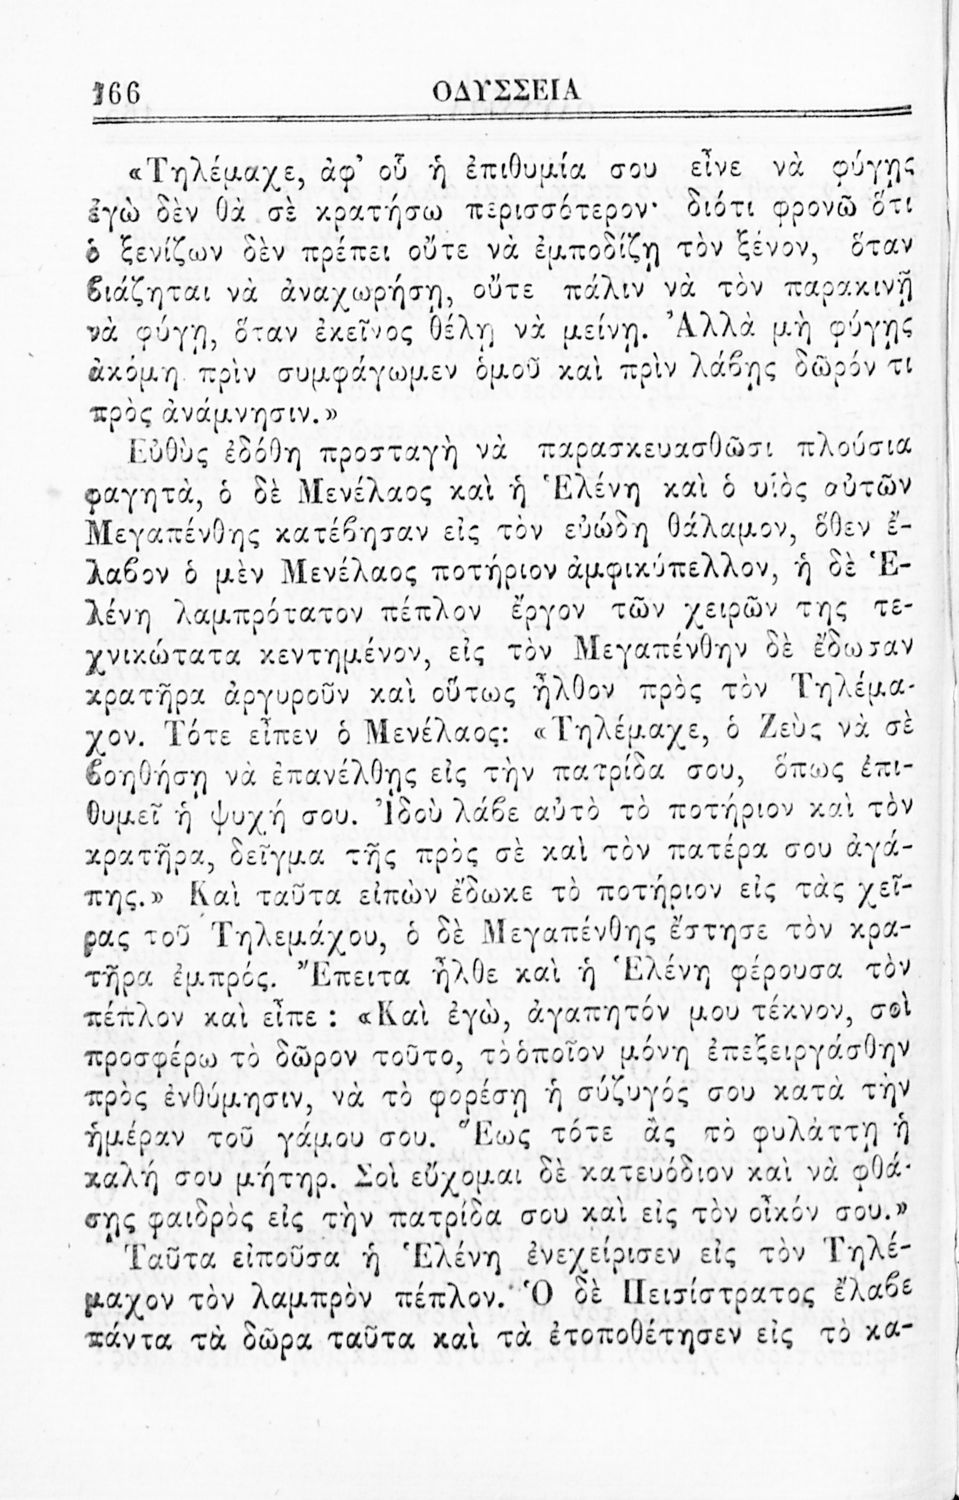 166 ΟΔΥΣΣΕΙΑ
«Τηλέμαχε, ἀφ’ οὗ ἡ ἐπιθυμία σου εἶνε νὰ φύγῃς
ἐγὼ δὲν θὰ σὲ κρατήσω περισσότερον· διότι φρονῶ ὅτι
ὁ ξενίζων δὲν πρέπει οὔτε νὰ ἐμποδίζῃ τὸν ξένον, ὅταν
βιάζηται νὰ ἀναχωρήσῃ, οὔτε πάλιν νὰ τὸν παρακινῇ
νὰ φύγῃ, ὅταν ἐκεῖνος θέλῃ νὰ μείνῃ. Ἀλλὰ μὴ φύγῃς
ἀκόμη πρὶν συμφάγωμεν ὁμοῦ καὶ πρὶν λάβῃς δῶρόν τι
πρὸς ἀνάμνησιν.»
Εὐθὺς ἐδόθη προσταγὴ νὰ παρασκευασθῶσι πλούσια
φαγητὰ, ὁ δὲ Μενέλαος καὶ ἡ Ἑλένη καὶ ὁ υἱὸς αὐτῶν
Μεγαπένθης κατέβησαν εἰς τὸν εὐώδη θάλαμον, ὅθεν ἔ-
λαβον ὁ μὲν Μενέλαος ποτήριον ἀμφικύπελλον, ἡ δὲ Ἑ-
λένη λαμπρότατον πέπλον ἔργον τῶν χειρῶν της τε-
χνικώτατα κεντημένον, εἰς τὸν Μεγαπένθην δὲ ἔδωσαν
κρατῆρα ἀργυροῦν καὶ οὕτως ἦλθον πρὸς τὸν Τηλέμα-
χον. Τότε εἶπεν ὁ Μενέλαος: «Τηλέμαχε, ὁ Ζεὺς νὰ σὲ
βοηθήσῃ νὰ ἐπανέλθῃς εἰς τὴν πατρίδα σου, ὅπως ἐπι-
θυμεῖ ἡ ψυχή σου. Ἰδοὺ λάβε αὐτὸ τὸ ποτήριον καὶ τὸν
κρατῆρα, δεῖγμα τῆς πρὸς σὲ καὶ τὸν πατέρα σου ἀγά-
πης.» Καὶ ταῦτα εἰπὼν ἔδωκε τὸ ποτήριον εἰς τὰς χεῖ-
ρας τοῦ Τηλεμάχου, ὁ δὲ Μεγαπένθης ἔστησε τὸν κρα-
τῆρα ἐμπρός. Ἔπειτα ἦλθε καὶ ἡ Ἑλένη φέρουσα τὸν
πέπλον καὶ εἶπε : «Καὶ ἐγὼ, ἀγαπητόν μου τέκνον, σοὶ
προσφέρω τὸ δῶρον τοῦτο, τὸ ὁποῖον μόνη ἐπεξειργάσθην
πρὸς ἐνθύμησιν, νὰ τὸ φορέσῃ ἡ σύζυγός σου κατὰ τὴν
ἡμέραν τοῦ γάμου σου. Ἕως τότε ἂς τὸ φυλάττῃ ἡ
καλή σου μήτηρ. Σοὶ εὔχομαι δὲ κατευόδιον καὶ νὰ φθά-
σῃς φαιδρὸς εἰς τὴν πατρίδα σου καὶ εἰς τὸν οἶκόν σου.»
Ταῦτα εἰποῦσα ἡ Ἑλένη ἐνεχείρισεν εἰς τὸν Τηλέ-
μαχον τὸν λαμπρὸν πέπλον. Ὁ δὲ Πεισίστρατος ἔλαβε
πάντα τὰ δῶρα ταῦτα καὶ τὰ ἐτοποθέτησεν εἰς τὸ κα-